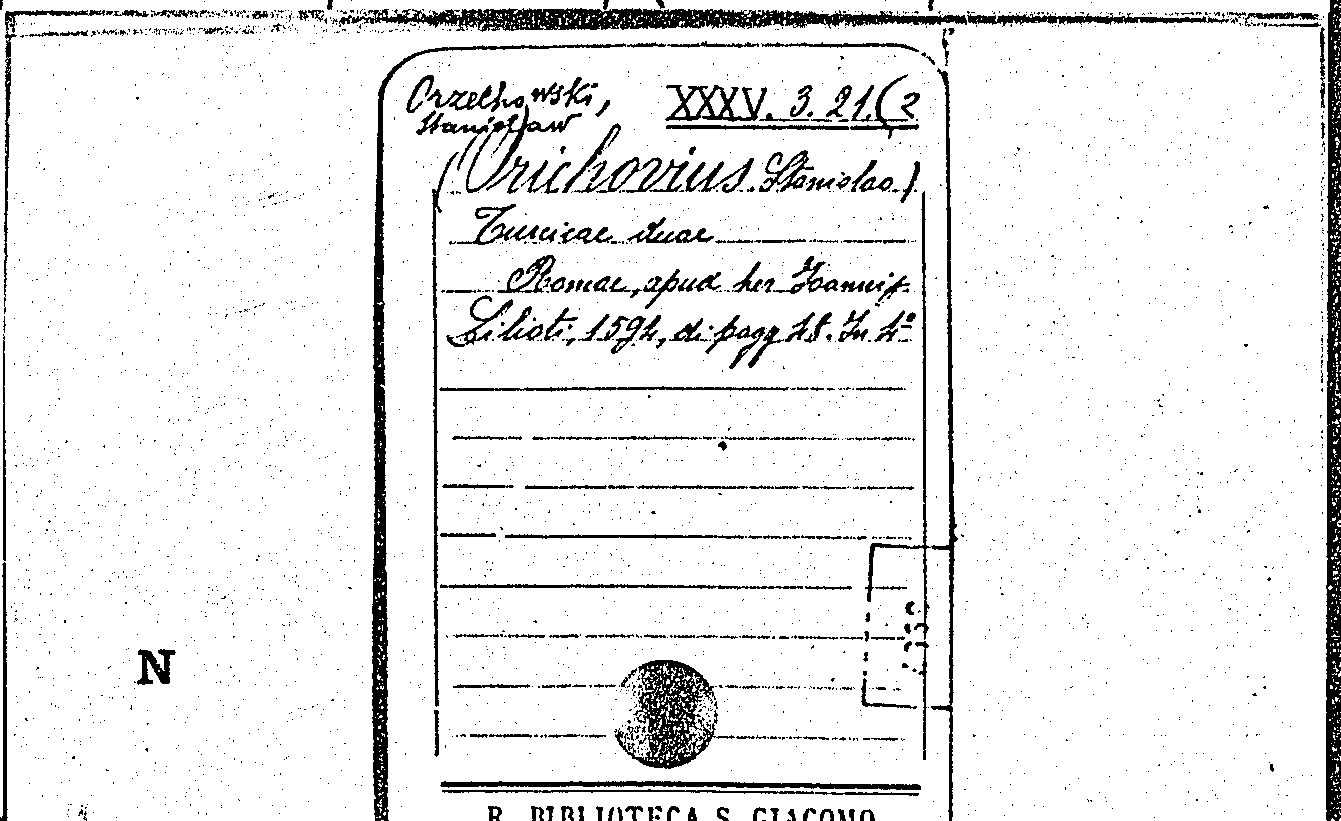 Orzechowski, XXXV. 3. 21.(2
Stanisław
(Orichovius Stanislao)
Turcicae duae
Romae, apud her Joannis
Lilioti, 1594, di pagg 48. In 4º
N
R. BIBLIOTECA S. GIACOMO